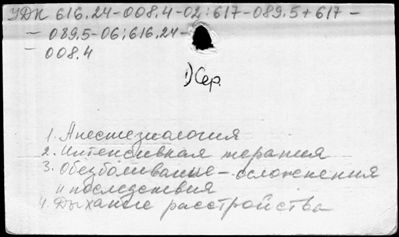 УДК 616.24-008.4-02:617-089.5+617-
- 089.5-06:616.24-
- 008.4
1) Сер.
1. Анестезиология
2. Интенсивная терапия
3. Обезболивание - осложнения
и последствия
4. Дыхание расстройства